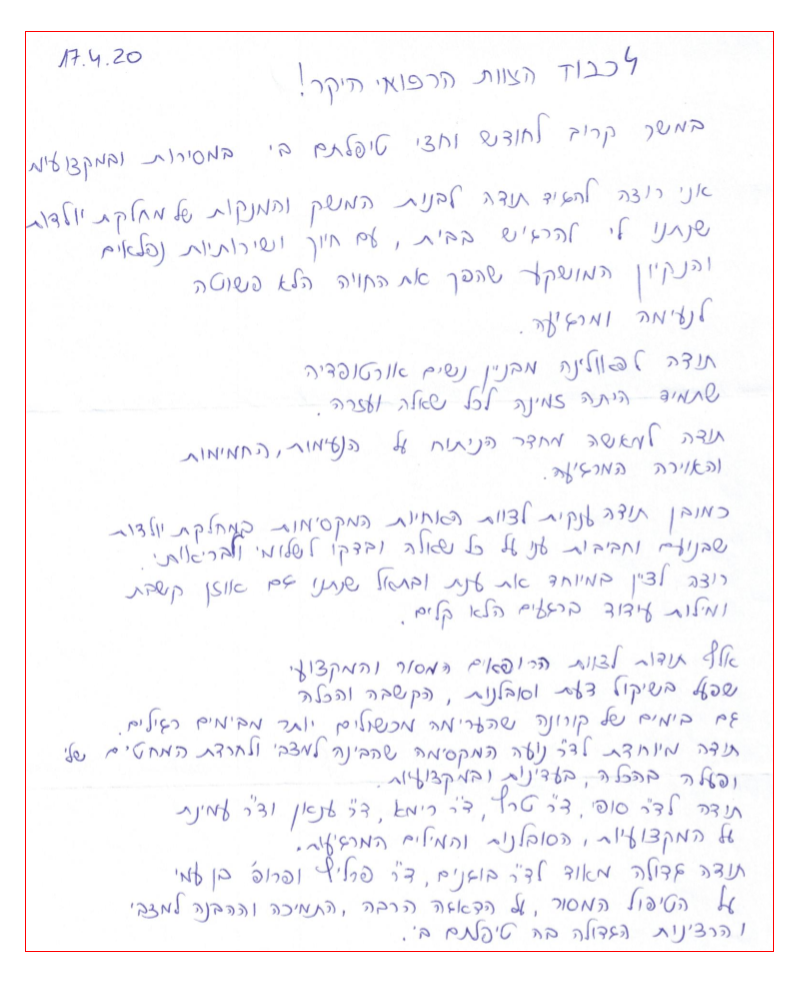 17.4.20
לכבוד הצוות הרפואי היקר!
במשך קרוב לחודש וחצי טיפלתם בי במסירות ובמקצועיות
אני רוצה להגיד תודה לבנות המשק והמנקות של מחלקת יולדות
שנתנו לי להרגיש בבית, עם חיוך ושירותיות נפלאים
והנקיון המושקע שהפך את החויה הלא פשוטה
לנעימה ומרגיעה.
תודה לפאולינה מבניין נשים אורטופדיה
שתמיד היתה זמינה לכל שאלה ועזרה.
תודה למאשה מחדר הניתוח על הנעימות, החמימות
והאוירה המרגיעה.
כמובן תודה ענקית לצוות האחיות המקסימות במחלקת יולדות
שבנועם וחביבות ענו על כל שאלה ובדקו לשלומי ולבריאותי.
רוצה לציין במיוחד את ענת ובתאל שנתנו גם אוזן קשבת
ומילות עידוד ברגעים הלא קלים.
אלף תודות לצוות הרופאים המסור והמקצועי
שפעל בשיקול דעת וסובלנות, הקשבה והכלה
גם בימים של קורונה שהערימה מכשולים יותר מבימים רגילים.
תודה מיוחדת לד"ר נועה המקסימה שהבינה למצבי ולחרדת המחטים שלי
ופעלה בהכלה, בעדינות ובמקצועיות.
תודה לד"ר סופי, ד"ר טרף, ד"ר רימא, ד"ר ענאן וד"ר עמינת
על המקצועיות, הסובלנות והמילים המרגיעות.
תודה גדולה מאוד לד"ר בוגנים, ד"ר פרליץ ופרופ' בן עמי
על הטיפול המסור, על הדאגה הרבה, התמיכה וההבנה למצבי
והרצינות הגדולה בה טיפלתם בי.